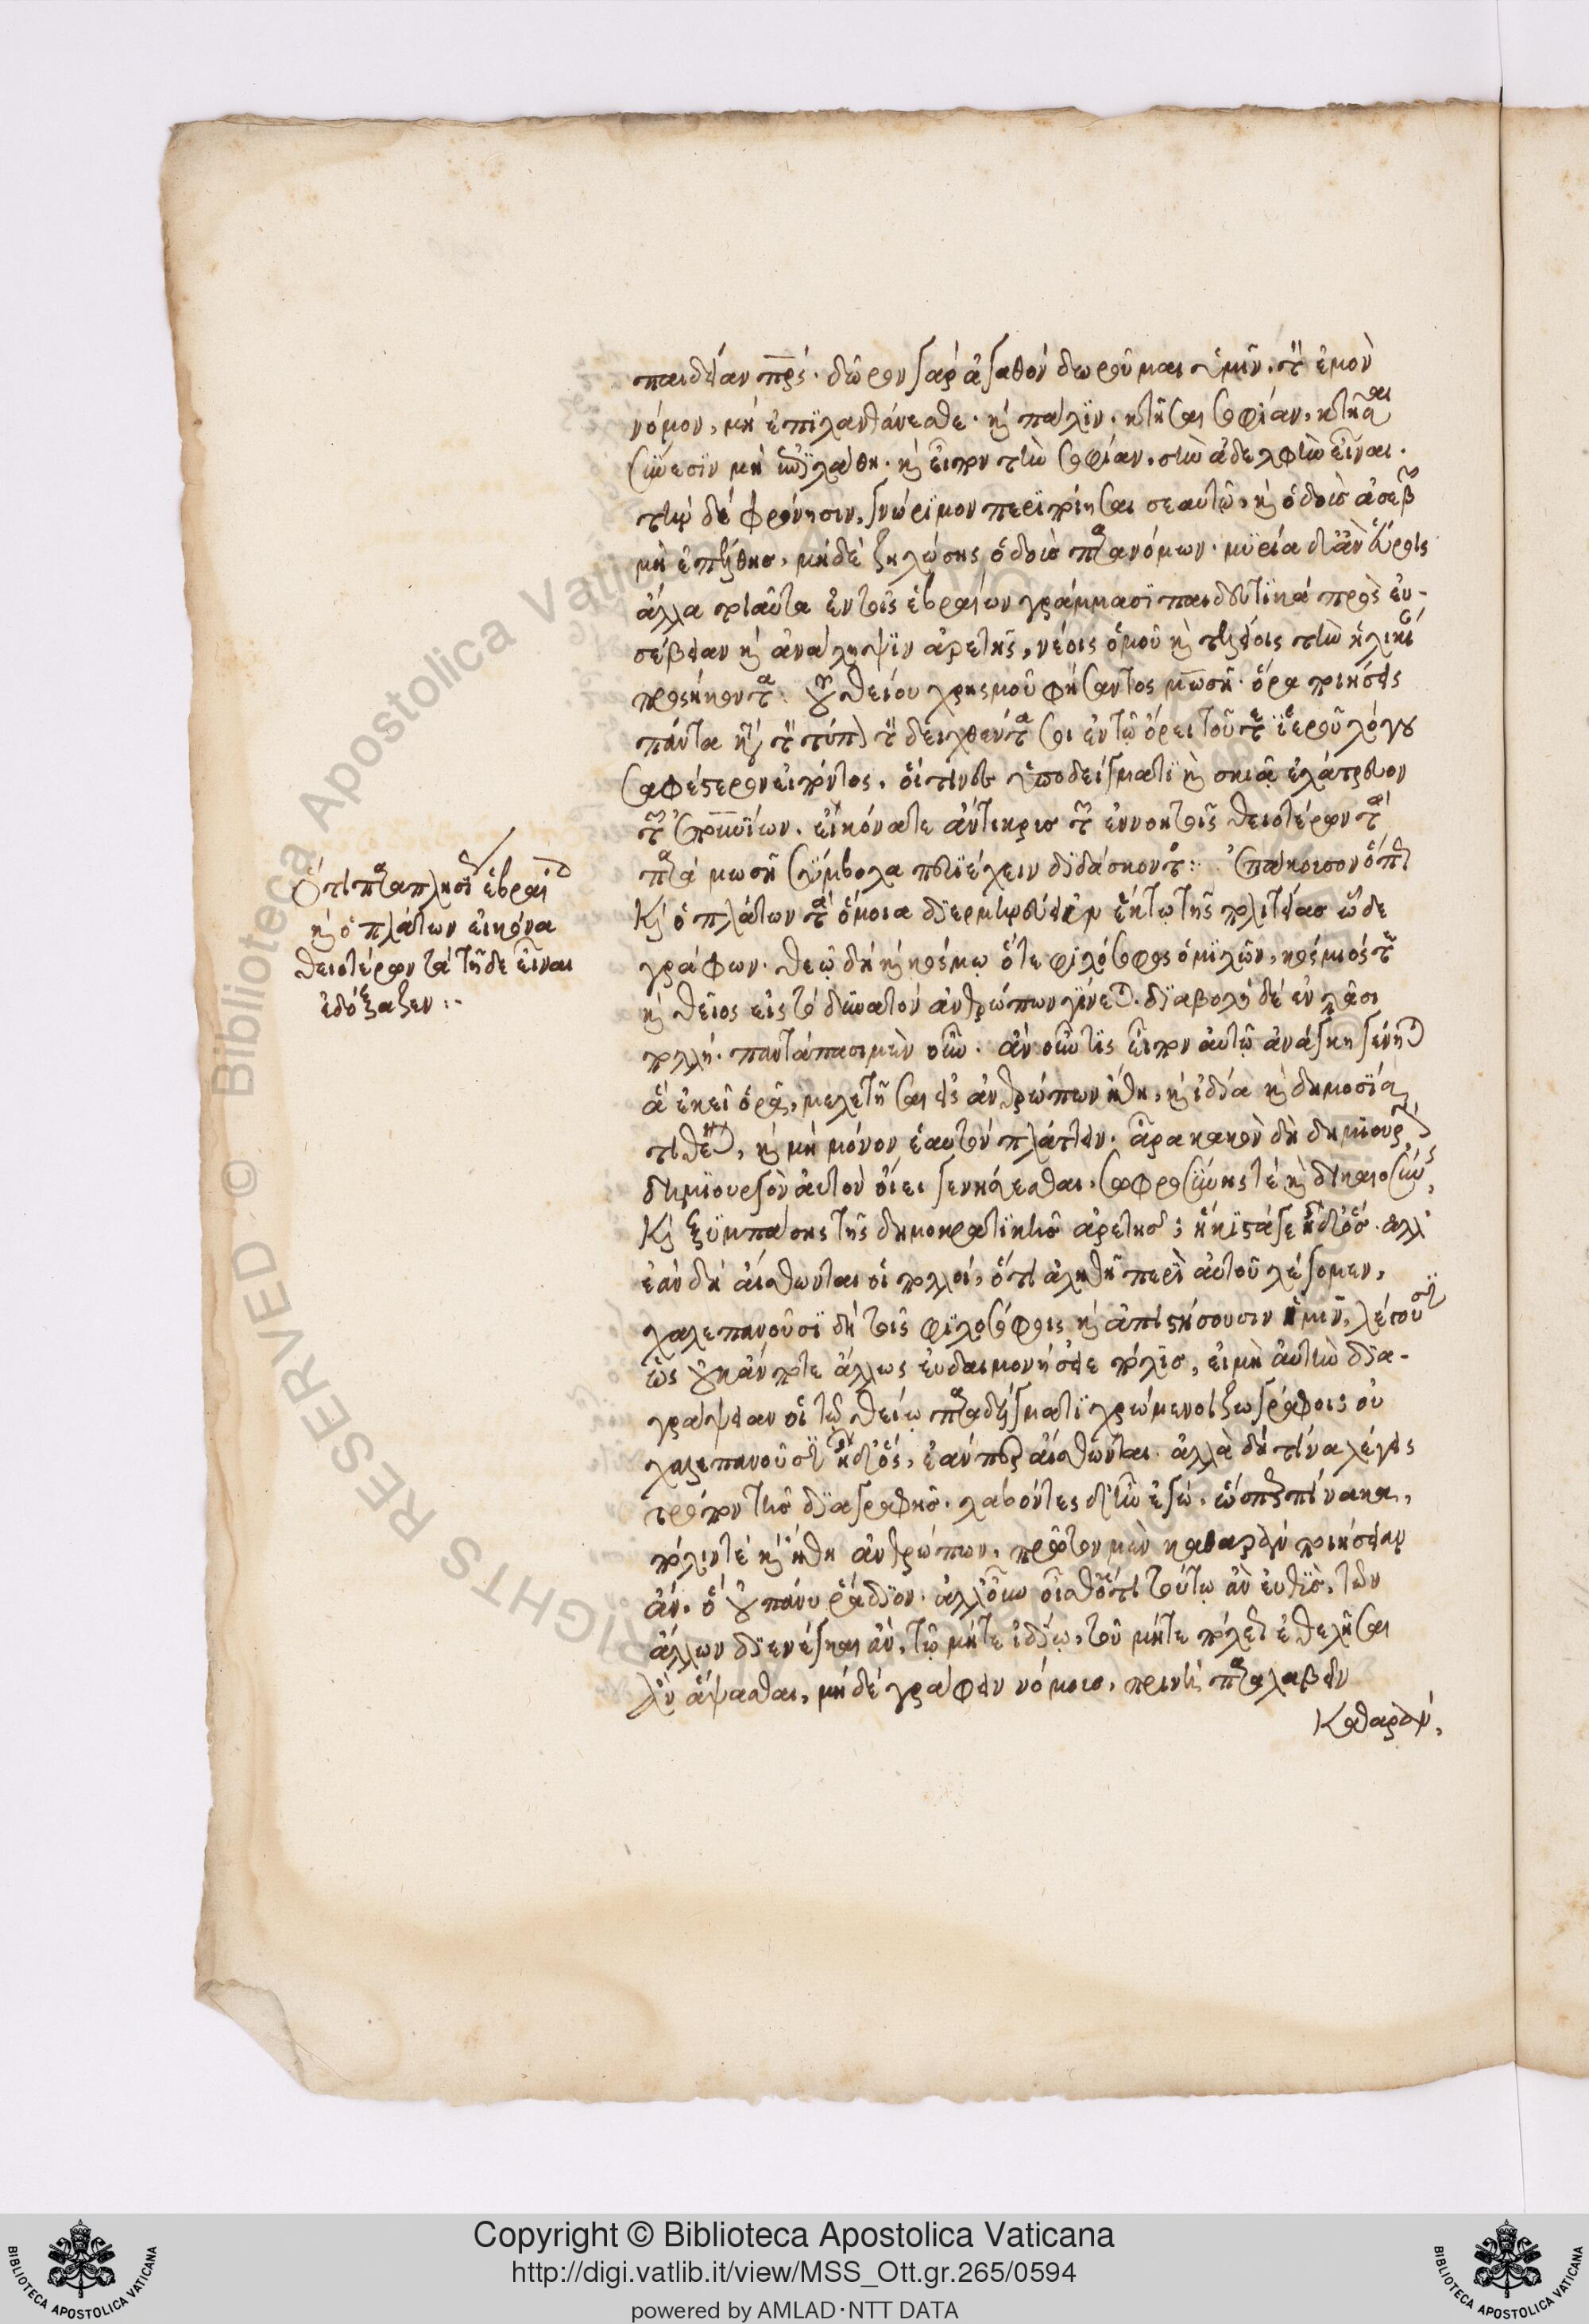 παιδείαν πρς· δῶρον γὰρ ἀγαθὸν δωροῦμαι ὑμῖν· τὸν ἐμὸν
νόμον, μὴ ἐπιλανθάνεσθε· καὶ πάλιν· κτῆσαι σοφίαν, κτῆσαι
σύνεσιν μὴ ἐπιλάθῃ· καὶ εἶπον τὴν σοφίαν, σὴν ἀδελφὴν εἶναι·
τὴν δὲ φρόνησιν, γνώριμον περιποίησαι σεαυτῷ, καὶ ὁδοὺς ἀσεβῶν
μὴ ἐπέλθῃς, μηδὲ ζηλώσῃς ὁδοὺς παρανόμων· μυρία δ' ἂν εὕροις
ἄλλα τοιαῦτα ἐν τοῖς ἑβραίων γράμμασι παιδευτικὰ πρὸς εὐ-
σέβειαν καὶ ἀνάληψιν ἀρετῆς, νέοις ὁμοῦ καὶ τελείοις τὴν ἡλικίαν
προσήκοντα· τοῦ θείου χρησμοῦ φήσαντος μωσῆ· ὅρα ποιήσεις
πάντα κατὰ τὸν τύπον τὸν δειχθέντα σοι ἐν τῷ ὄρει τοῦ τε ἱεροῦ λόγου
σαφέστερον εἰπόντος, οἵτινες ὑποδείγματι καὶ σκιᾷ ἐλάτρευον
τῶν ἐπουρανίων· εἰκόνα τε ἄντικρυς τῶν ἐν νοητοῖς θειοτέρων τὰ
παρὰ μωσῆ σύμβολα περιέχειν διδάσκοντος:· ἐπάκουσον ὅπως
καὶ ὁ πλάτων τὰ ὅμοια διερμηνεύει ἐν ἕκτῳ τῆς πολιτείας ὧδε
γράφων· θεῷ δὴ καὶ κόσμῳ ὅτε φιλόσοφος ὁμιλῶν, κόσμιός τε
καὶ θεῖος εἰς τὸ δυνατὸν ἀνθρώπων γίνεται· διαβολὴ δὲ ἐν πᾶσι
πολλή· παντάπασι μὲν οὖν· ἂν οὖν τις εἶπον αὐτῷ ἀνάγκη γένηται
ἃ ἐκεῖ ὁρᾷ, μελετῆσαι εἰς ἀνθρώπων ἤθη, καὶ ἰδίᾳ καὶ δημοσίᾳ
τιθέναι, καὶ μὴ μόνον ἑαυτὸν πλάττειν· ἆρα κακὸν δὴ δημιουργὸν
δημιουργὸν αὐτὸν οἴει γενήσεσθαι, σωφροσύνης τέ καὶ δικαιοσύνης,
καὶ ξυμπάσης τῆς δημοκρατικῆς ἀρετῆς; ἥκιστά γε ἦ δ' ὅς· ἀλλ'
ἐὰν δὴ αἴσθωνται οἱ πολλοί, ὅτι ἀληθῆ περὶ αὐτοῦ λέγομεν,
χαλεπανοῦσι δὴ τοῖς φιλοσόφοις καὶ ἀπιστήσουσιν ἡμῖν, λέγουσιν
ὡς οὐκ ἄν ποτε ἄλλως εὐδαιμονήσειε πόλις, εἰ μὴ αὐτὴν δια-
γράψειαν οἱ τῷ θείῳ παραδείγματι χρώμενοι ζωγράφοις οὐ
χαλεπανοῦσιν ἦ δ' ὅς, ἐάνπερ αἴσθωνται· ἀλλὰ δὴ τίνα λέγεις
τρόπον τῆς διαγραφῆς· λαβόντες δ' ἦν ἐγώ· ὥσπερ πίνακα,
πόλιν τέ καὶ ἤθη ἀνθρώπων, πρῶτον μὲν καθαρὰν ποιήσειαν
ἄν· ὃ οὐ πάνυ ῥᾴδιον· ἀλλ' οὖν οἶσθ' ὅτι τούτῳ ἂν εὐθὺς, τῶν
ἄλλων διενέγκαι ἂν, τῷ μήτε ἰδίῳ, τοῦ μήτε πόλεως ἐθελῆσαι
ἂν ἅψασθαι, μηδὲ γράφειν νόμους, πρινὴ παραλαβεῖν
καθαρὰν,
Ὅτι παραπλησίως ἑβραίοις
καὶ ὁ πλάτων εἰκόνα
θειοτέρων τὰ τῇδε εἶναι
ἐδόξαζεν:·
Copyright © Biblioteca Apostolica Vaticana
http://digi.vatlib.it/view/MSS_Ott.gr.265/0594
powered by AMLAD·NTT DATA